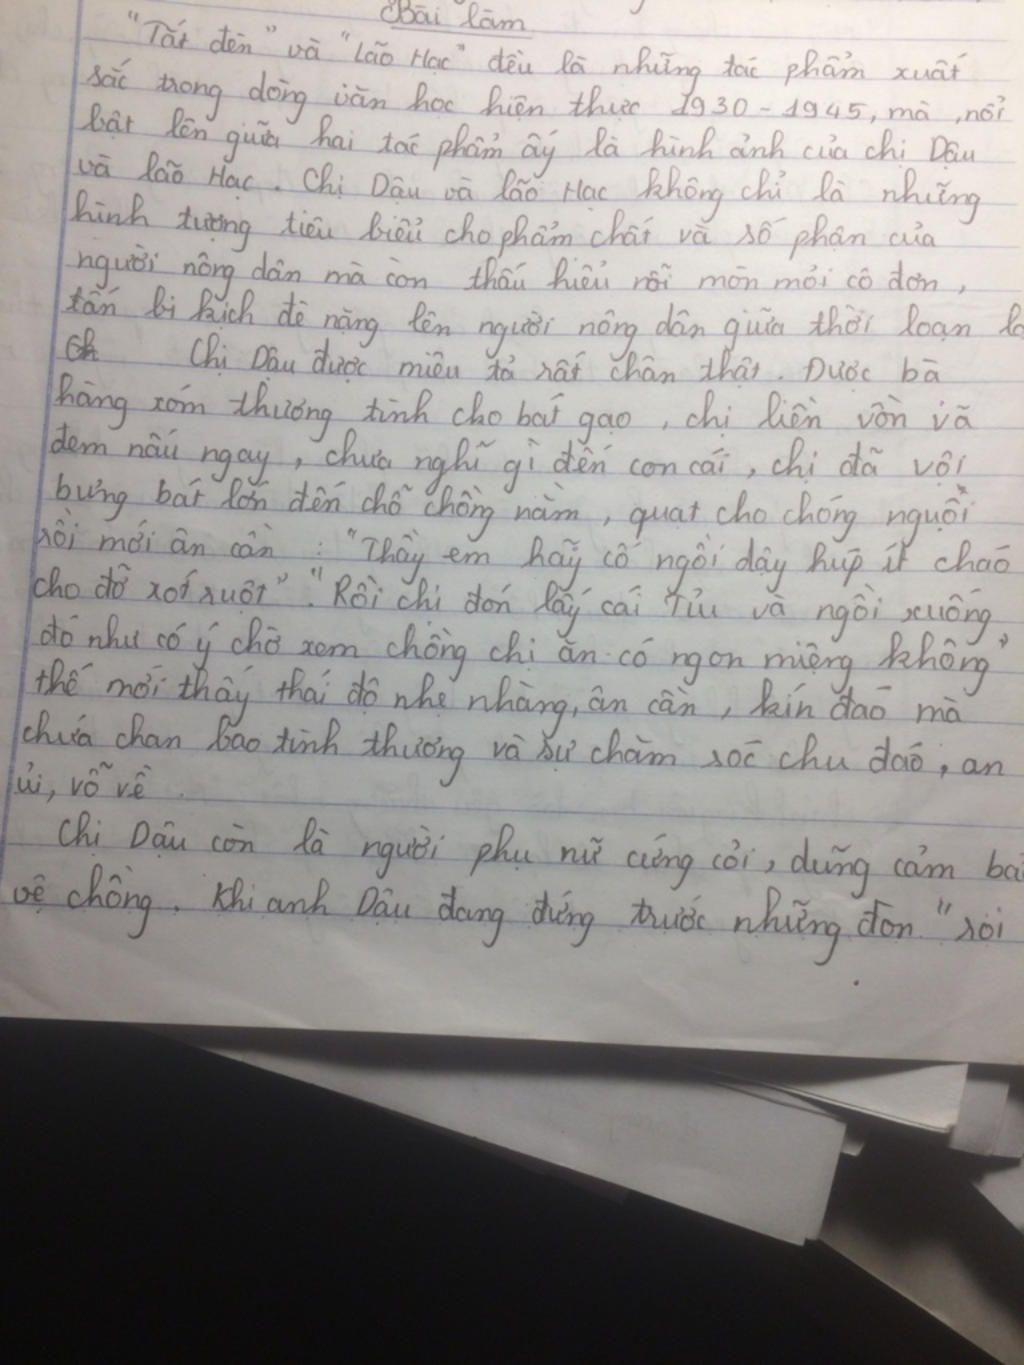 Bài làm
"Tắt đèn" và "Lão Hạc" đều là những tác phẩm xuất
sắc trong dòng văn học hiện thực 1930 - 1945, mà nổi
bật lên giữa hai tác phẩm ấy là hình ảnh của chị Dậu
và lão Hạc. Chị Dậu và lão Hạc không chỉ là những
hình tượng tiêu biểu cho phẩm chất và số phận của
người nông dân mà còn thấu hiểu nỗi mòn mỏi cô đơn,
tấn bi kịch đè nặng lên người nông dân giữa thời loạn
Chị Dậu được miêu tả rất chân thật. Được bà
hàng xóm thương tình cho bát gạo, chị liền vồn vã
đem nấu ngay, chưa nghĩ gì đến con cái, chị đã vội
bưng bát lớn đến chỗ chồng nằm, quạt cho chóng nguội
rồi mới ân cần : "Thầy em hãy cố ngồi dậy húp ít cháo
cho đỡ xót ruột". "Rồi chị đón lấy cái Tỉu và ngồi xuống
đó như có ý chờ xem chồng chị ăn có ngon miệng không"
thế mới thấy thái độ nhẹ nhàng, ân cần, kín đáo mà
chứa chan bao tình thương và sự chăm sóc chu đáo, an
ủi, vỗ về.
Chị Dậu còn là người phụ nữ cứng cỏi, dũng cảm
vệ chồng. Khi anh Dậu đang đứng trước những đòn "roi